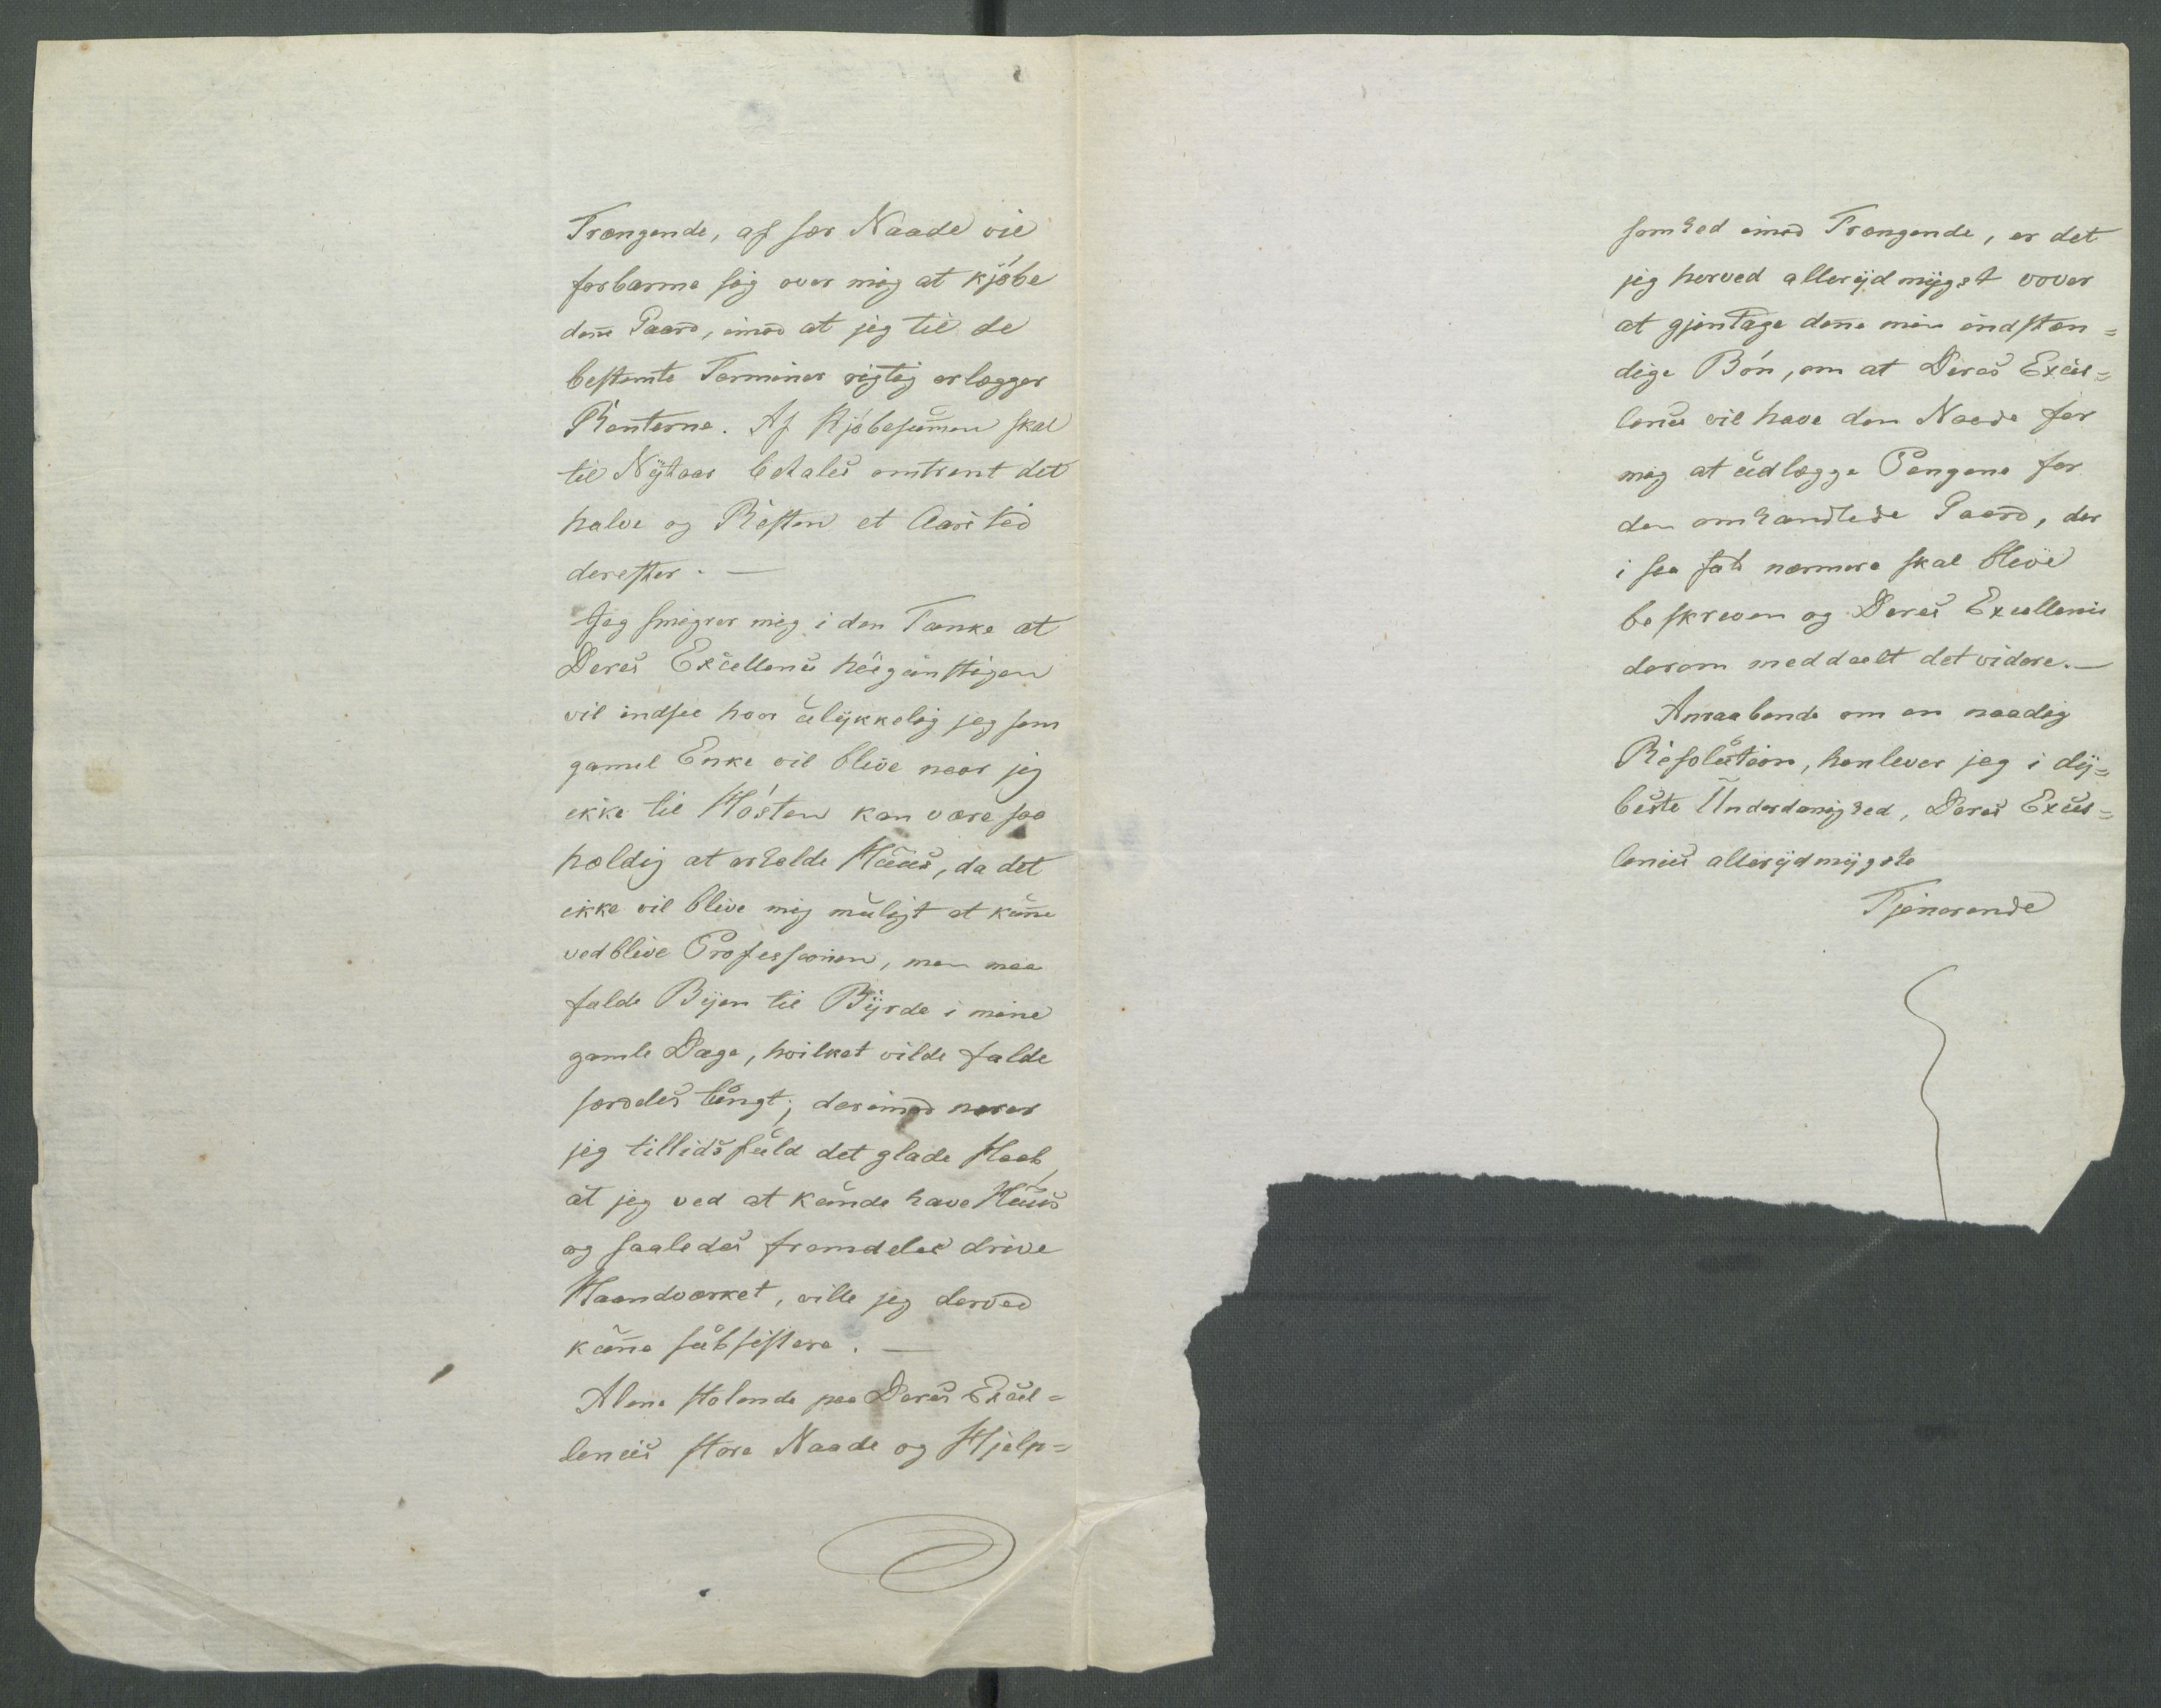 Trængende, af sær Naade vil
forbarme sig over mig at kjøbe
den̄e Gaard, imod at jeg til de
bestemte Terminer rigtig erlægger
Renterne. Af Kjøbesum̄en skal
til Nÿtaar betales omtrent det
halve og Resten et Aars tid
derefter. —
Jeg smigrer mig i den Tanke at
Deres Excellence høigunstigen
vil indsee hvor ulÿkkelig jeg som
gamel Enke vil blive naar jeg
ikke til Høsten kan være saa
heldig at erholde Huus, da det
ikke vil blive mig muligt at kun̄e
vedblive Professionen, men maa
falde Bÿen til Bÿrde i mine
gamle Dage, hvilket vilde falde
særdeles tungt; derimod nærer
jeg tillidsfuld det glade Haab,
at jeg ved at kunde have Huus
og saaledes fremdeles drive
Haandværket, ville jeg derved
kun̄e subsistere. —
Alene stolende paa Deres Excel=
lences store Naade og Hjelp=
somhed imod Trængende, er det
jeg herved allerÿdmÿgst vover
at gjentage den̄e min indstæn=
dige Bøn, om at Deres Excel=
lence vil have den Naade for
mig at udlægge Pengene for
den omhandlede Gaard, der
i saa fald nærmere skal blive
beskreven og Deres Excellence
derom meddeelt det videre. —
Anraabende om en naadig
Resolution, henlever jeg i dÿ=
beste Underdanighed, Deres Excel=
lences allerÿdmÿgste
Tjenerende